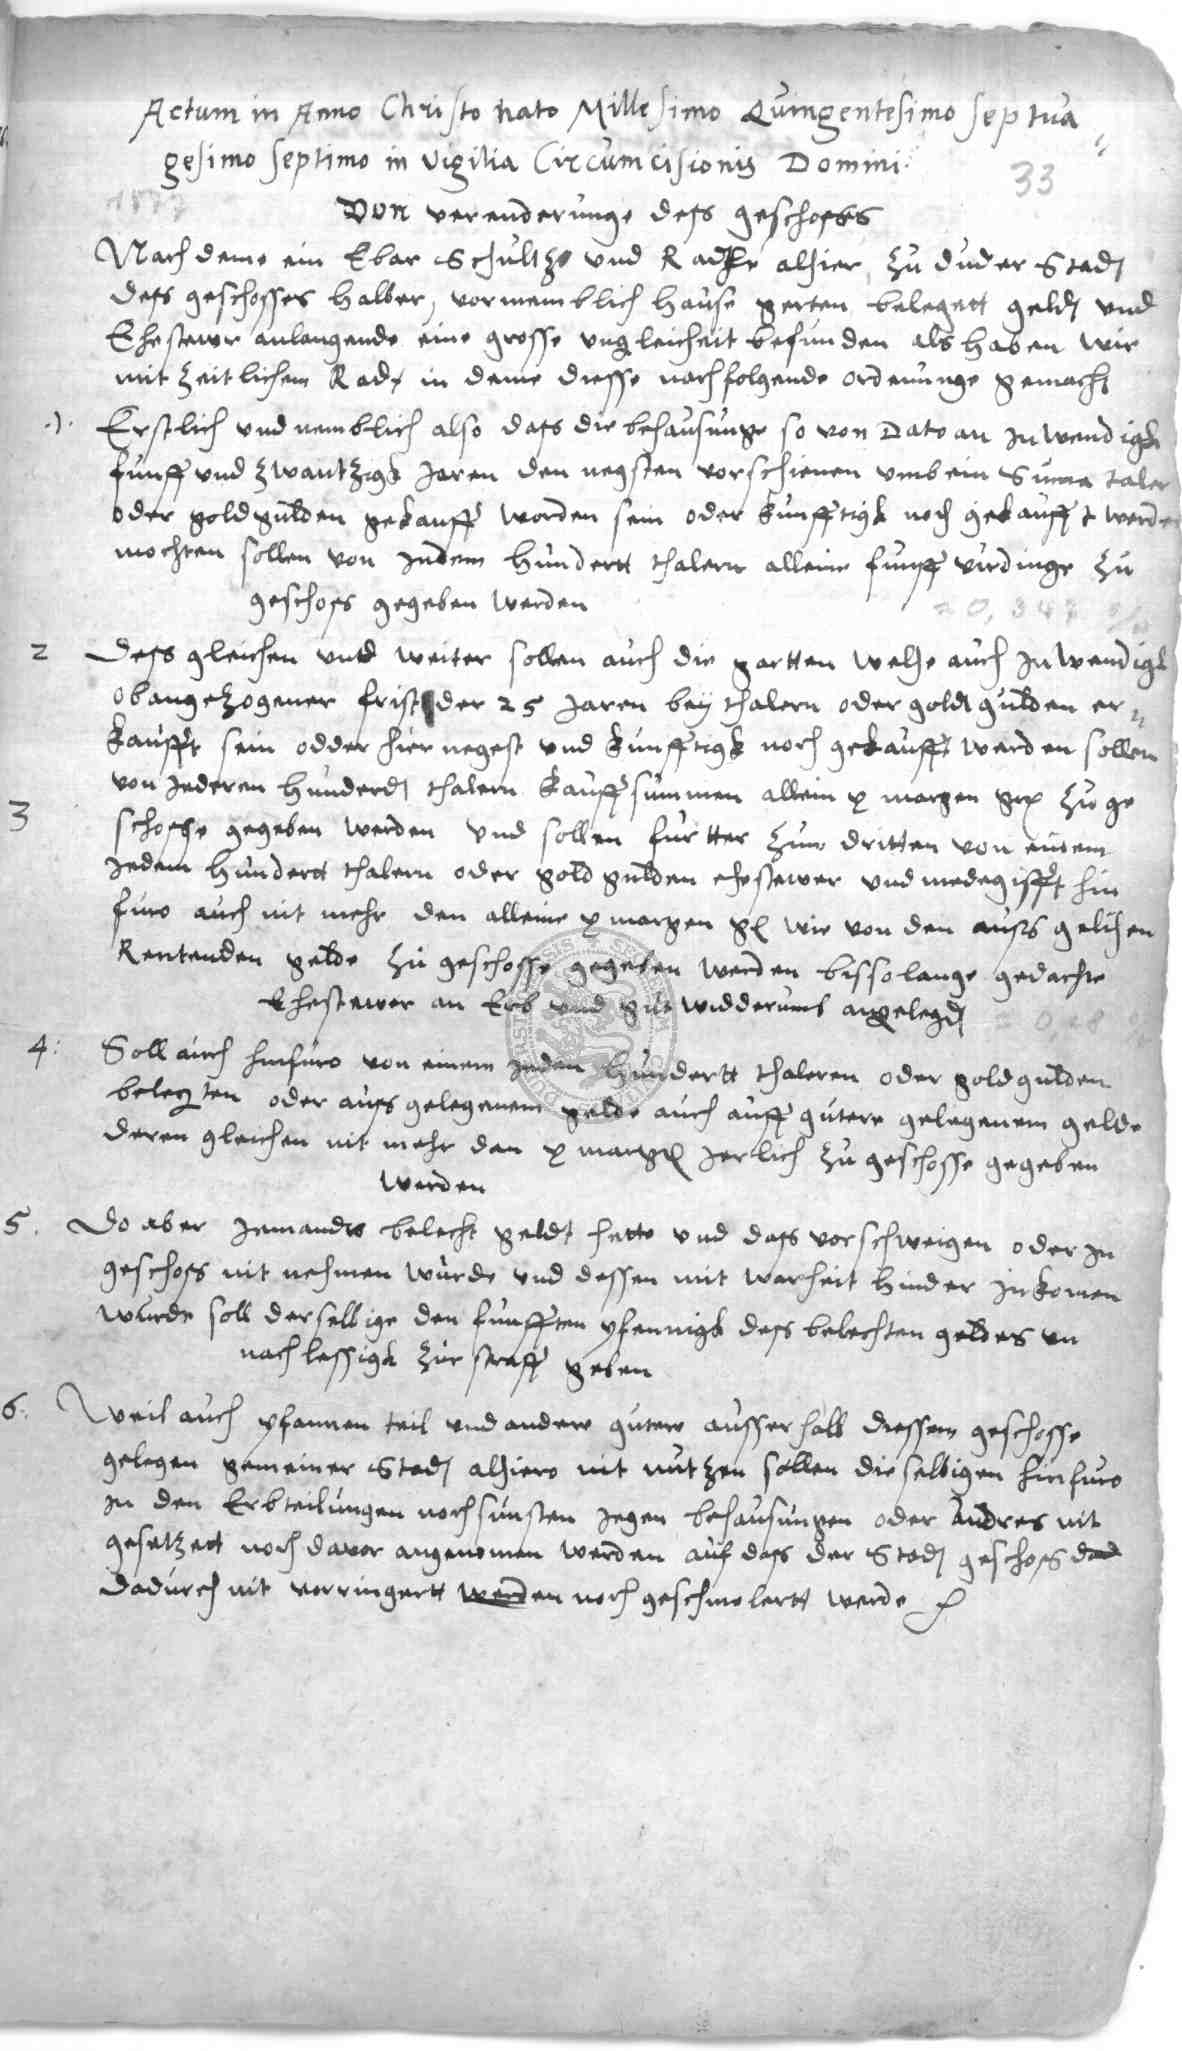 Actum in Anno Christo nato Millesimo Quingentesimo septua
gesimo septimo in vigilia Circumcisionis Domini
33
Von verenderunge dess geschosses
Nach deme ein Ebar Schultze und Radtt alhier zu duder Stadt
dess geschosses halber, vornemblich hause gerten belegett geldt und
Ehestewr anlangende eine grosse ungleicheit befunden als haben wir
mit zeitlichem Rade in deme diesse nachfolgende ordenunge gemacht
.1. Erstlich und nemblich also dass die behausunge so von Dato an Inwendigk
funff und zwantzigk Jaren den negsten vorschienen umb ein Suma taler
oder goldgulden gekaufft worden sein oder kunfftigk noch gekaufft werden
mochten sollen von Jedem hundertt thalern alleine funff virdinge zu
geschoss gegeben werden
2 Dess gleichen und weiter sollen auch die gartten welche auch Inwendigk
obangezogener frist der 25 Jaren bey thalern oder goldt gulden er
kaufft sein odder hier negest und kunfftigk noch gekaufft werden sollen
von Jederen hunderdt thalern kauffsummen allein x margen gr zu ge
3 schosse gegeben werden und sollen furtter zum dritten von einem
Jedem hundertt thalern oder gold gulden ehestewer und medegifft hin
furo auch nit mehr den alleine x margen gr wie von den auss gelihen
Rentenden gelde zu geschosse gegeben werden bissolange gedachte
Ehestewer an Erb und gut widderumb angelegdt
4: Soll auch hinfuro von einem Jeden hundertt thaleren oder goldgulden
belegten oder auss gelegenem gelde auch auff gutere gelegenem gelde
deren gleichen nit mehr den x mar gr Jerlich zu geschosse gegeben
werden
5. Do aber Jemandts belecht geldt hette und dass vorschweigen oder In
geschoss nit nehmen wurde und dessen mit warheit hinder Inkomen
wurde soll derselbige den funfften pfennigk dess belechten geldes un
nachlessigk zur straff geben
6: Weil auch pfannen teil und andere gutere ausserhalb diessem geschosse
gelegen gemeiner Stadt alhiero nit nutzen sollen dieselbigen hinfuro
In den Erbteilungen noch sunsten Jegen behausungen oder Andres nit
gesetzett noch davor angenomen werden auf dass der Stadt geschoss dad
dadurch nit vorringertt werden noch geschmolertt werde